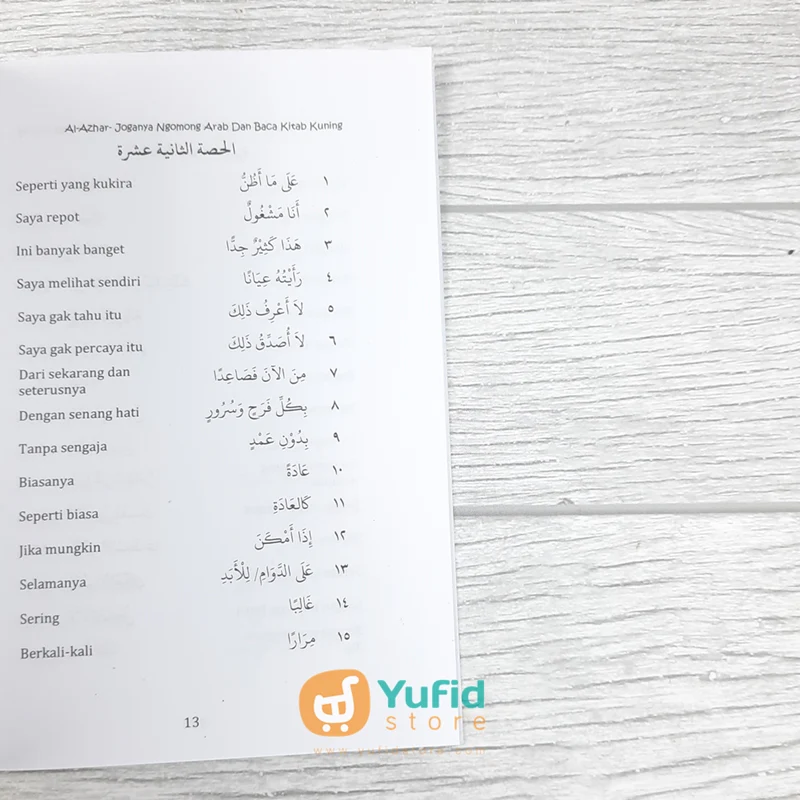 Al-Azhar- Joganya Ngomong Arab Dan Baca Kitab Kuning
الحصة الثانية عشرة
Seperti yang kukira عَلَى مَا أَظُنُّ ١
Saya repot أَنَا مَشْغُولٌ ٢
Ini banyak banget هَذَا كَثِيْرٌ جِدًّا ٣
Saya melihat sendiri رَأَيْتُهُ عِيَانًا ٤
Saya gak tahu itu لاَ أَعْرِفُ ذَلِكَ ٥
Saya gak percaya itu لاَ أُصَدِّقُ ذَلِكَ ٦
Dari sekarang dan مِنَ الآنَ فَصَاعِدًا ٧
seterusnya
Dengan senang hati بِكُلِّ فَرَحٍ وَسُرُورٍ ٨
Tanpa sengaja بِدُوْنِ عَمْدٍ ٩
Biasanya عَادَةً ١٠
Seperti biasa كَالعَادَةِ ١١
Jika mungkin إِذَا أَمْكَنَ ١٢
Selamanya عَلَى الدَّوَامِ/ لِلْأَبَدِ ١٣
Sering غَالِبًا ١٤
Berkali-kali مِرَارًا ١٥
13
Yufid
store
www.yufidstore.com